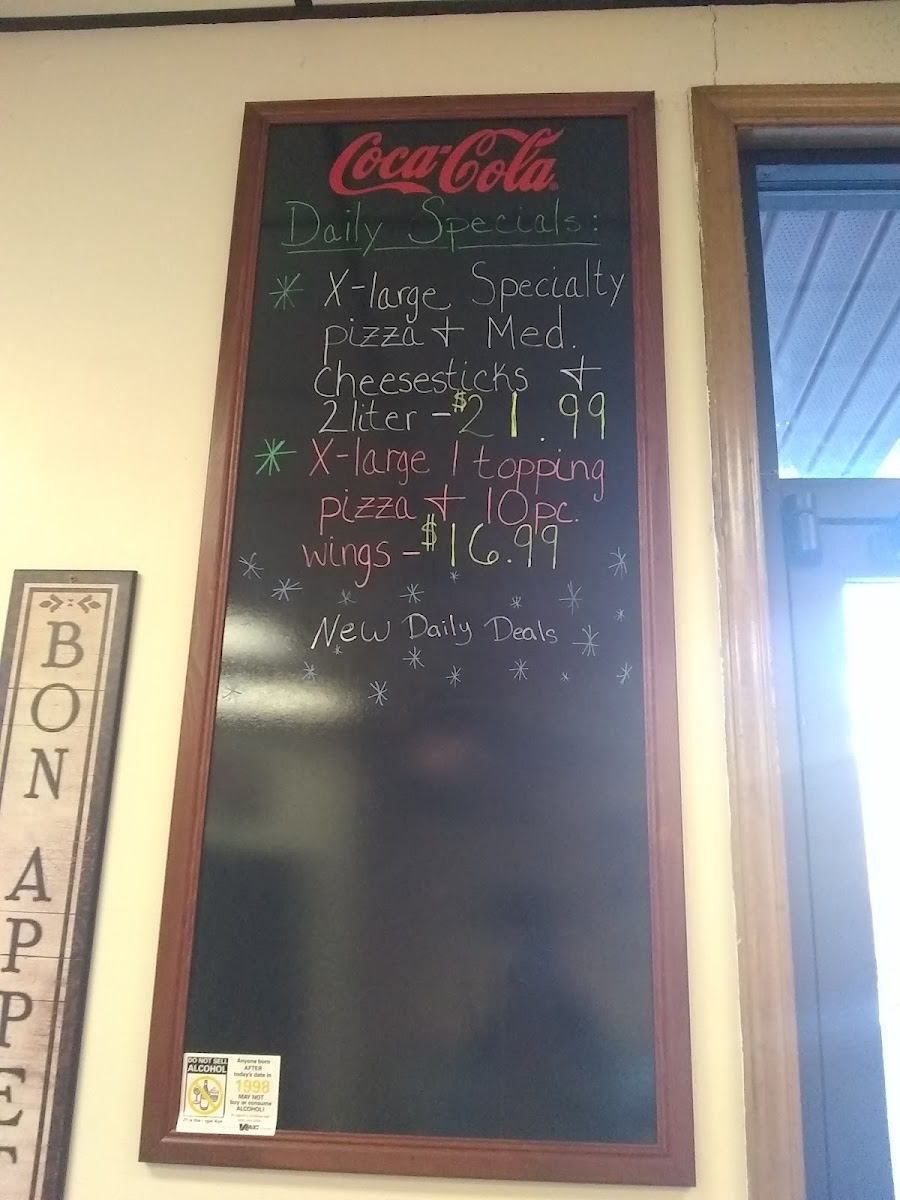 Coca-Cola
Daily Specials:
* X-large Specialty
pizza + Med.
cheesesticks +
2 liter - $21.99
* X-large 1 topping
pizza + 10 pc.
wings - $16.99
New Daily Deals
BON APPE
DO NOT SELL
ALCOHOL
Anyone born
AFTER
today's date in
1998
MAY NOT
buy or consume
ALCOHOL!